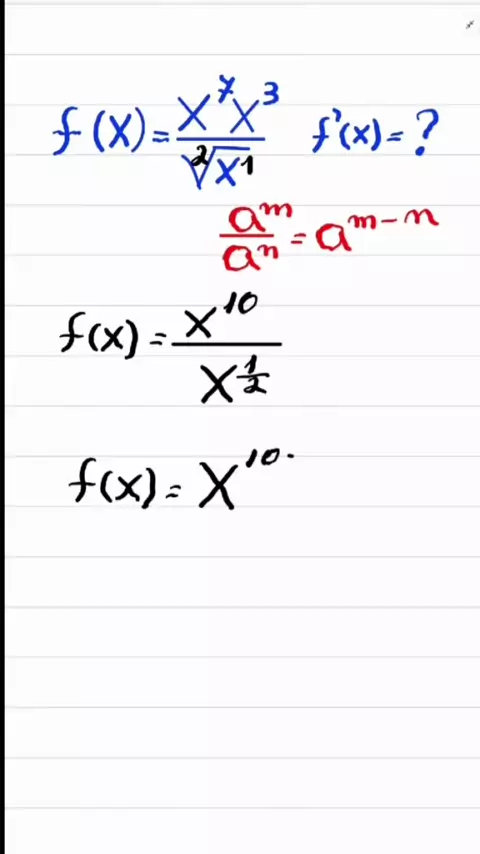 f(x) = x⁷x³ / ²√x¹ f'(x) = ?
aᵐ / aⁿ = aᵐ⁻ⁿ
f(x) = x¹⁰ / x^(1/2)
f(x) = x¹⁰·